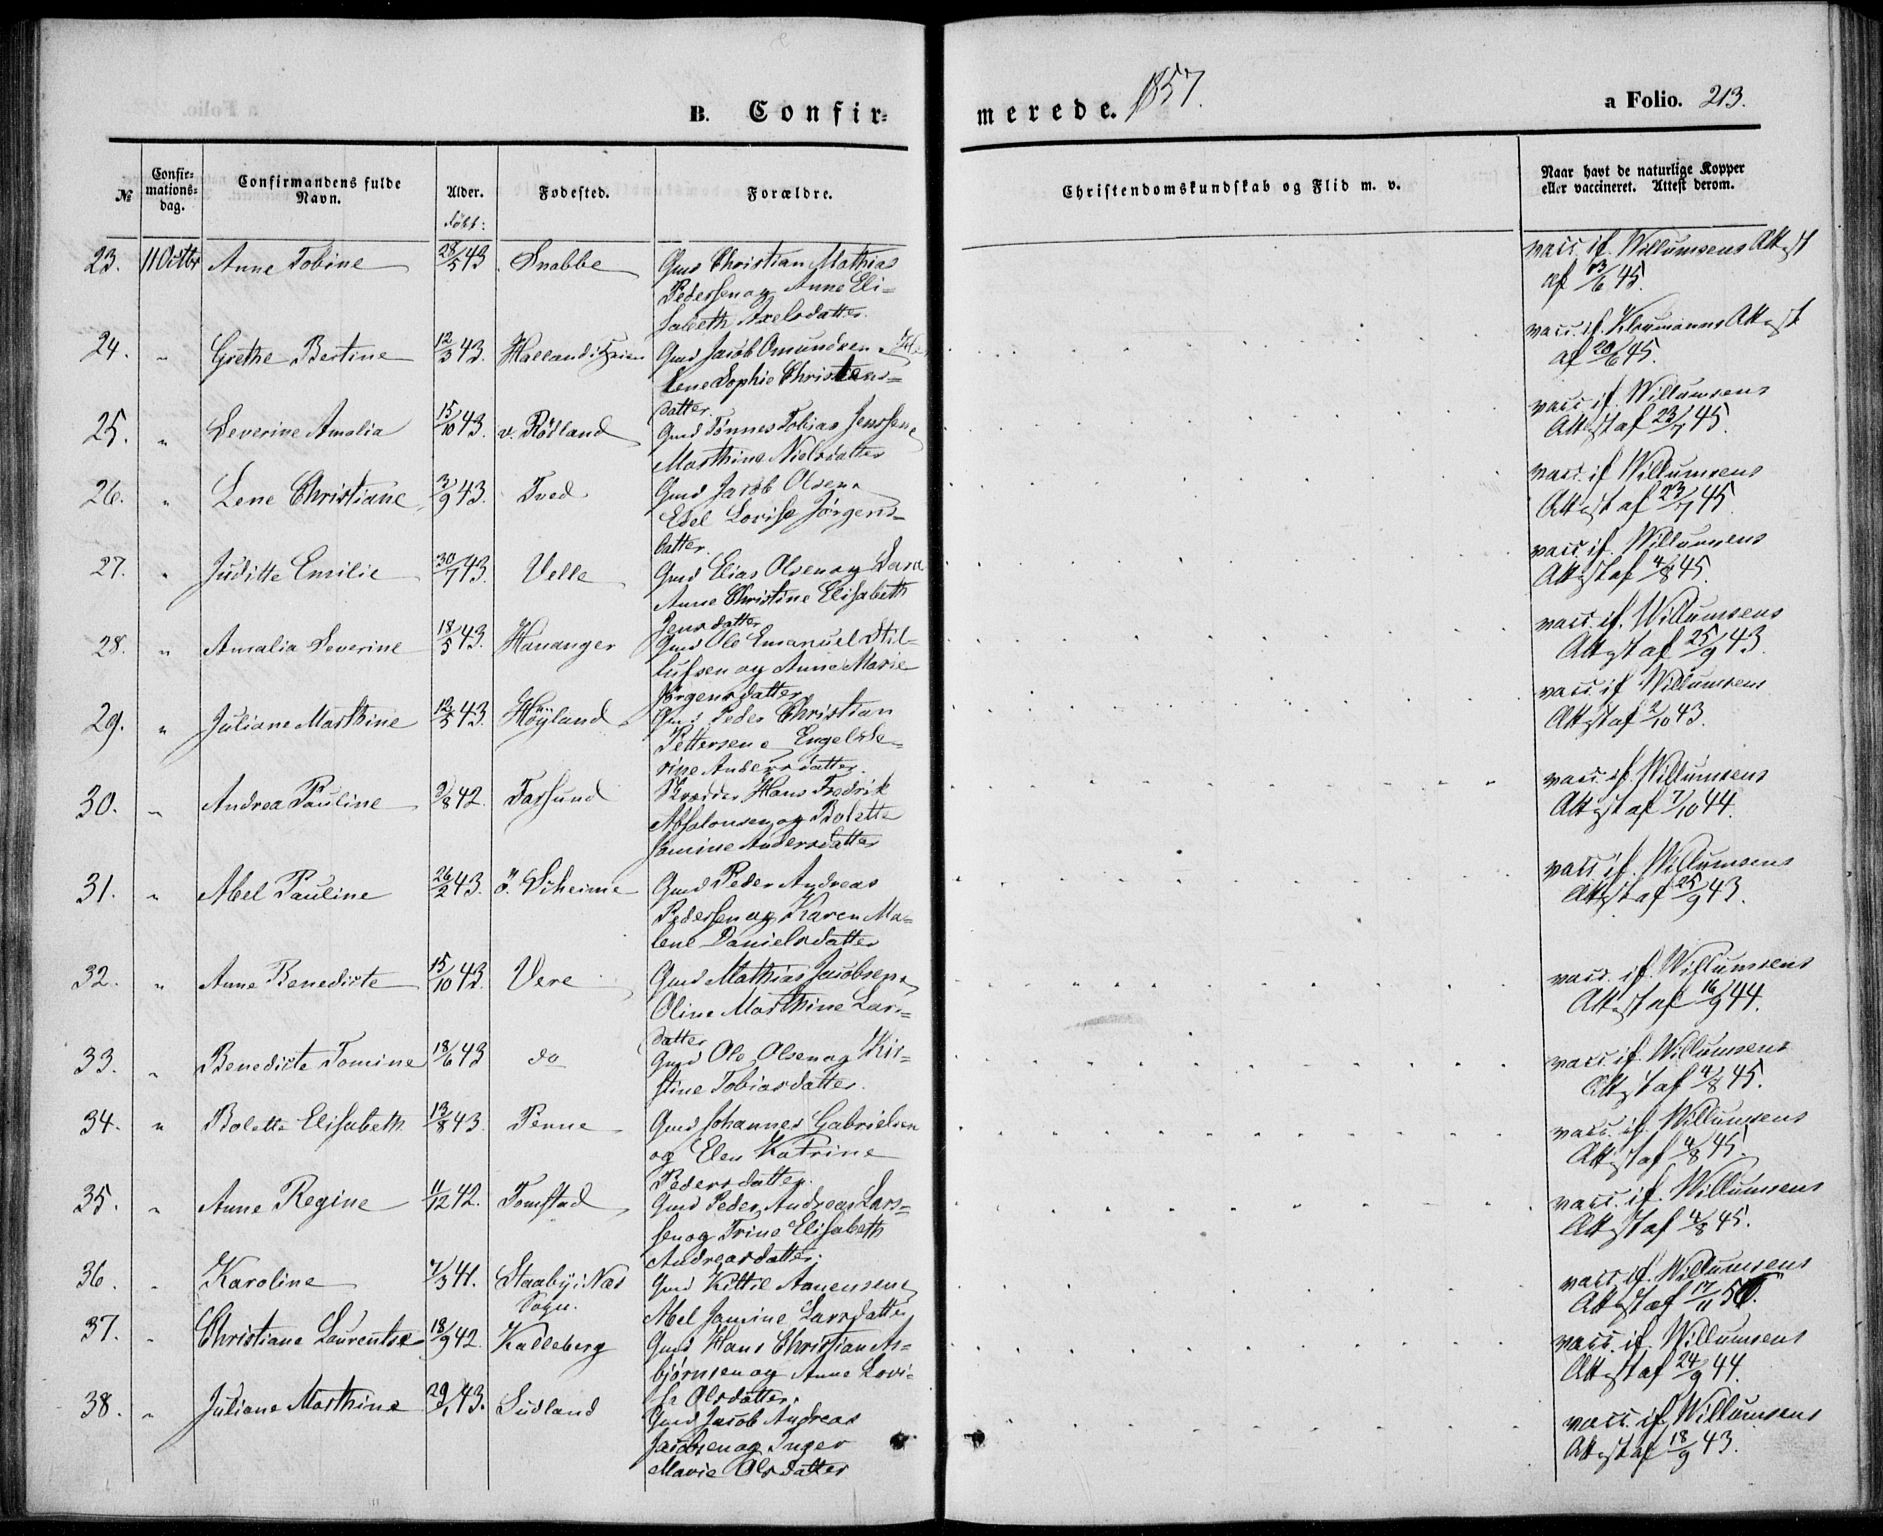 B. Confir-
merede. 1857.
a Folio. 213.
№
Confir-
mations-
dag.
Confirmandens fulde
Navn.
Alder.
født:
Fødested.
Forældre.
Christendomskundskab og Flid m. v.
Naar havt de naturlige Kopper
eller vaccineret. Attest derom.
23. 11 Octbr Anne Tobine 28/5 43. Snabbe Gmd Christian Mathias
Pedersen og Anne Eli-
sabeth Axelsdatter.
vacc. if. Willumsens Attest
af 13/6 45.
24. " Grethe Bertine 12/3 43. Halland i Gmd Jacob Omundsen
Lene Sophie Christens-
datter.
vacc. if. Attest
af 20/6 45.
25. " Severine Amalia 15/10 43. v. Rødland Gmd Tønnes Tobias Jenssen
Marthine Nielsdatter
vacc. if. Willumsens
Attest af 23/7 45.
26. " Lene Christiane 3/9 43. Tved Gmd Jacob Olsen
Edel Lovise Jørgens-
datter.
vacc. if. Willumsens
Attest af 23/7 45.
27. " Juditte Emilie 30/7 43. Velle Gmd Elias Olsen og Sara
Anne Christine Elisabeth
Jensdatter
vacc. if. Willumsens
Attest af 4/8 45.
28. " Amalia Severine 18/5 43. Hananger Gmd Ole Emanuel Stil-
lufsen og Anne Marie
Jørgensdatter
vacc. if. Willumsens
Attest af 25/9 43.
29. " Juliane Marthine 12/5 43. Høyland Gmd Peder Christian
Pettersen Engel Se-
rine Andersdatter.
vacc if Willumsens
Attest af 2/10 43.
30. " Andrea Pauline 2/8 42. Farsund Skræder Hans Fredrik
Absalonsen og Bolette
Jomine Andersdatter
vacc. if. Willumsens
Attest af 7/10 44.
31. " Abel Pauline 26/2 43. ø. Viheime Gmd Peder Andreas
Pedersen og Karen Ma-
lene Danielsdatter
vacc if. Willumsens
Attest af 25/9 43.
32. " Anne Benedicte 15/10 43. Vere Gmd Mathias Jacobsen
Oline Marthine Lars-
datter
vacc. if. Willumsens
Attest af 16/9 44.
33. " Benedicte Tomine 18/6 43 do Gmd Ole Olsen og Kir-
stine Tobiasdatter.
vacc. if. Willumsens
Attest af 4/8 45.
34. " Bolette Elisabeth 13/8 43. Penne Gmd Johannes Gabrielsen
og Elen Katrine
Pedersdatter.
vacc. if. Willumsens
Attest af 4/8 45.
35. " Anne Regine 11/12 42. Tomstad Gmd Peder Andreas Lars-
sen og Trine Elisabeth
Andreasdatter.
vacc. if. Willumsens
Attest af 4/8 45.
36. " Karoline 7/3 41. Staaby i Næs
Sogn.
Gmd Kittil Aanensen
Abel Jomine Larsdatter
vacc. if. Willumsens
Attest af 17/11 56.
37. " Christiane Laurentse 18/9 42. Kalleberg Gmd Hans Christian As-
bjørnsen og Anne Lovi-
se Olsdatter.
vacc. if. Willumsens
Attest af 24/9 44.
38. " Juliane Marthine 29/1 43. Sudland Gmd Jacob Andreas
Jacobsen og Inger
Marie Olsdatter
vacc. if. Willumsens
Attest af 18/9 43.